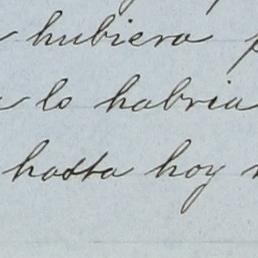 hubiera
lo habria
hasta hoy